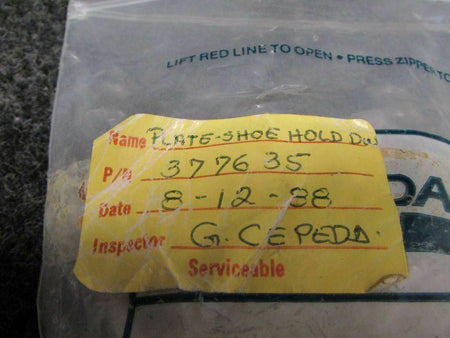 LIFT RED LINE TO OPEN • PRESS ZIPPER TO
Name PLATE-SHOE HOLD DW
P/N 377635
Date 8-12-88
Inspector G. CEPEDA.
Serviceable